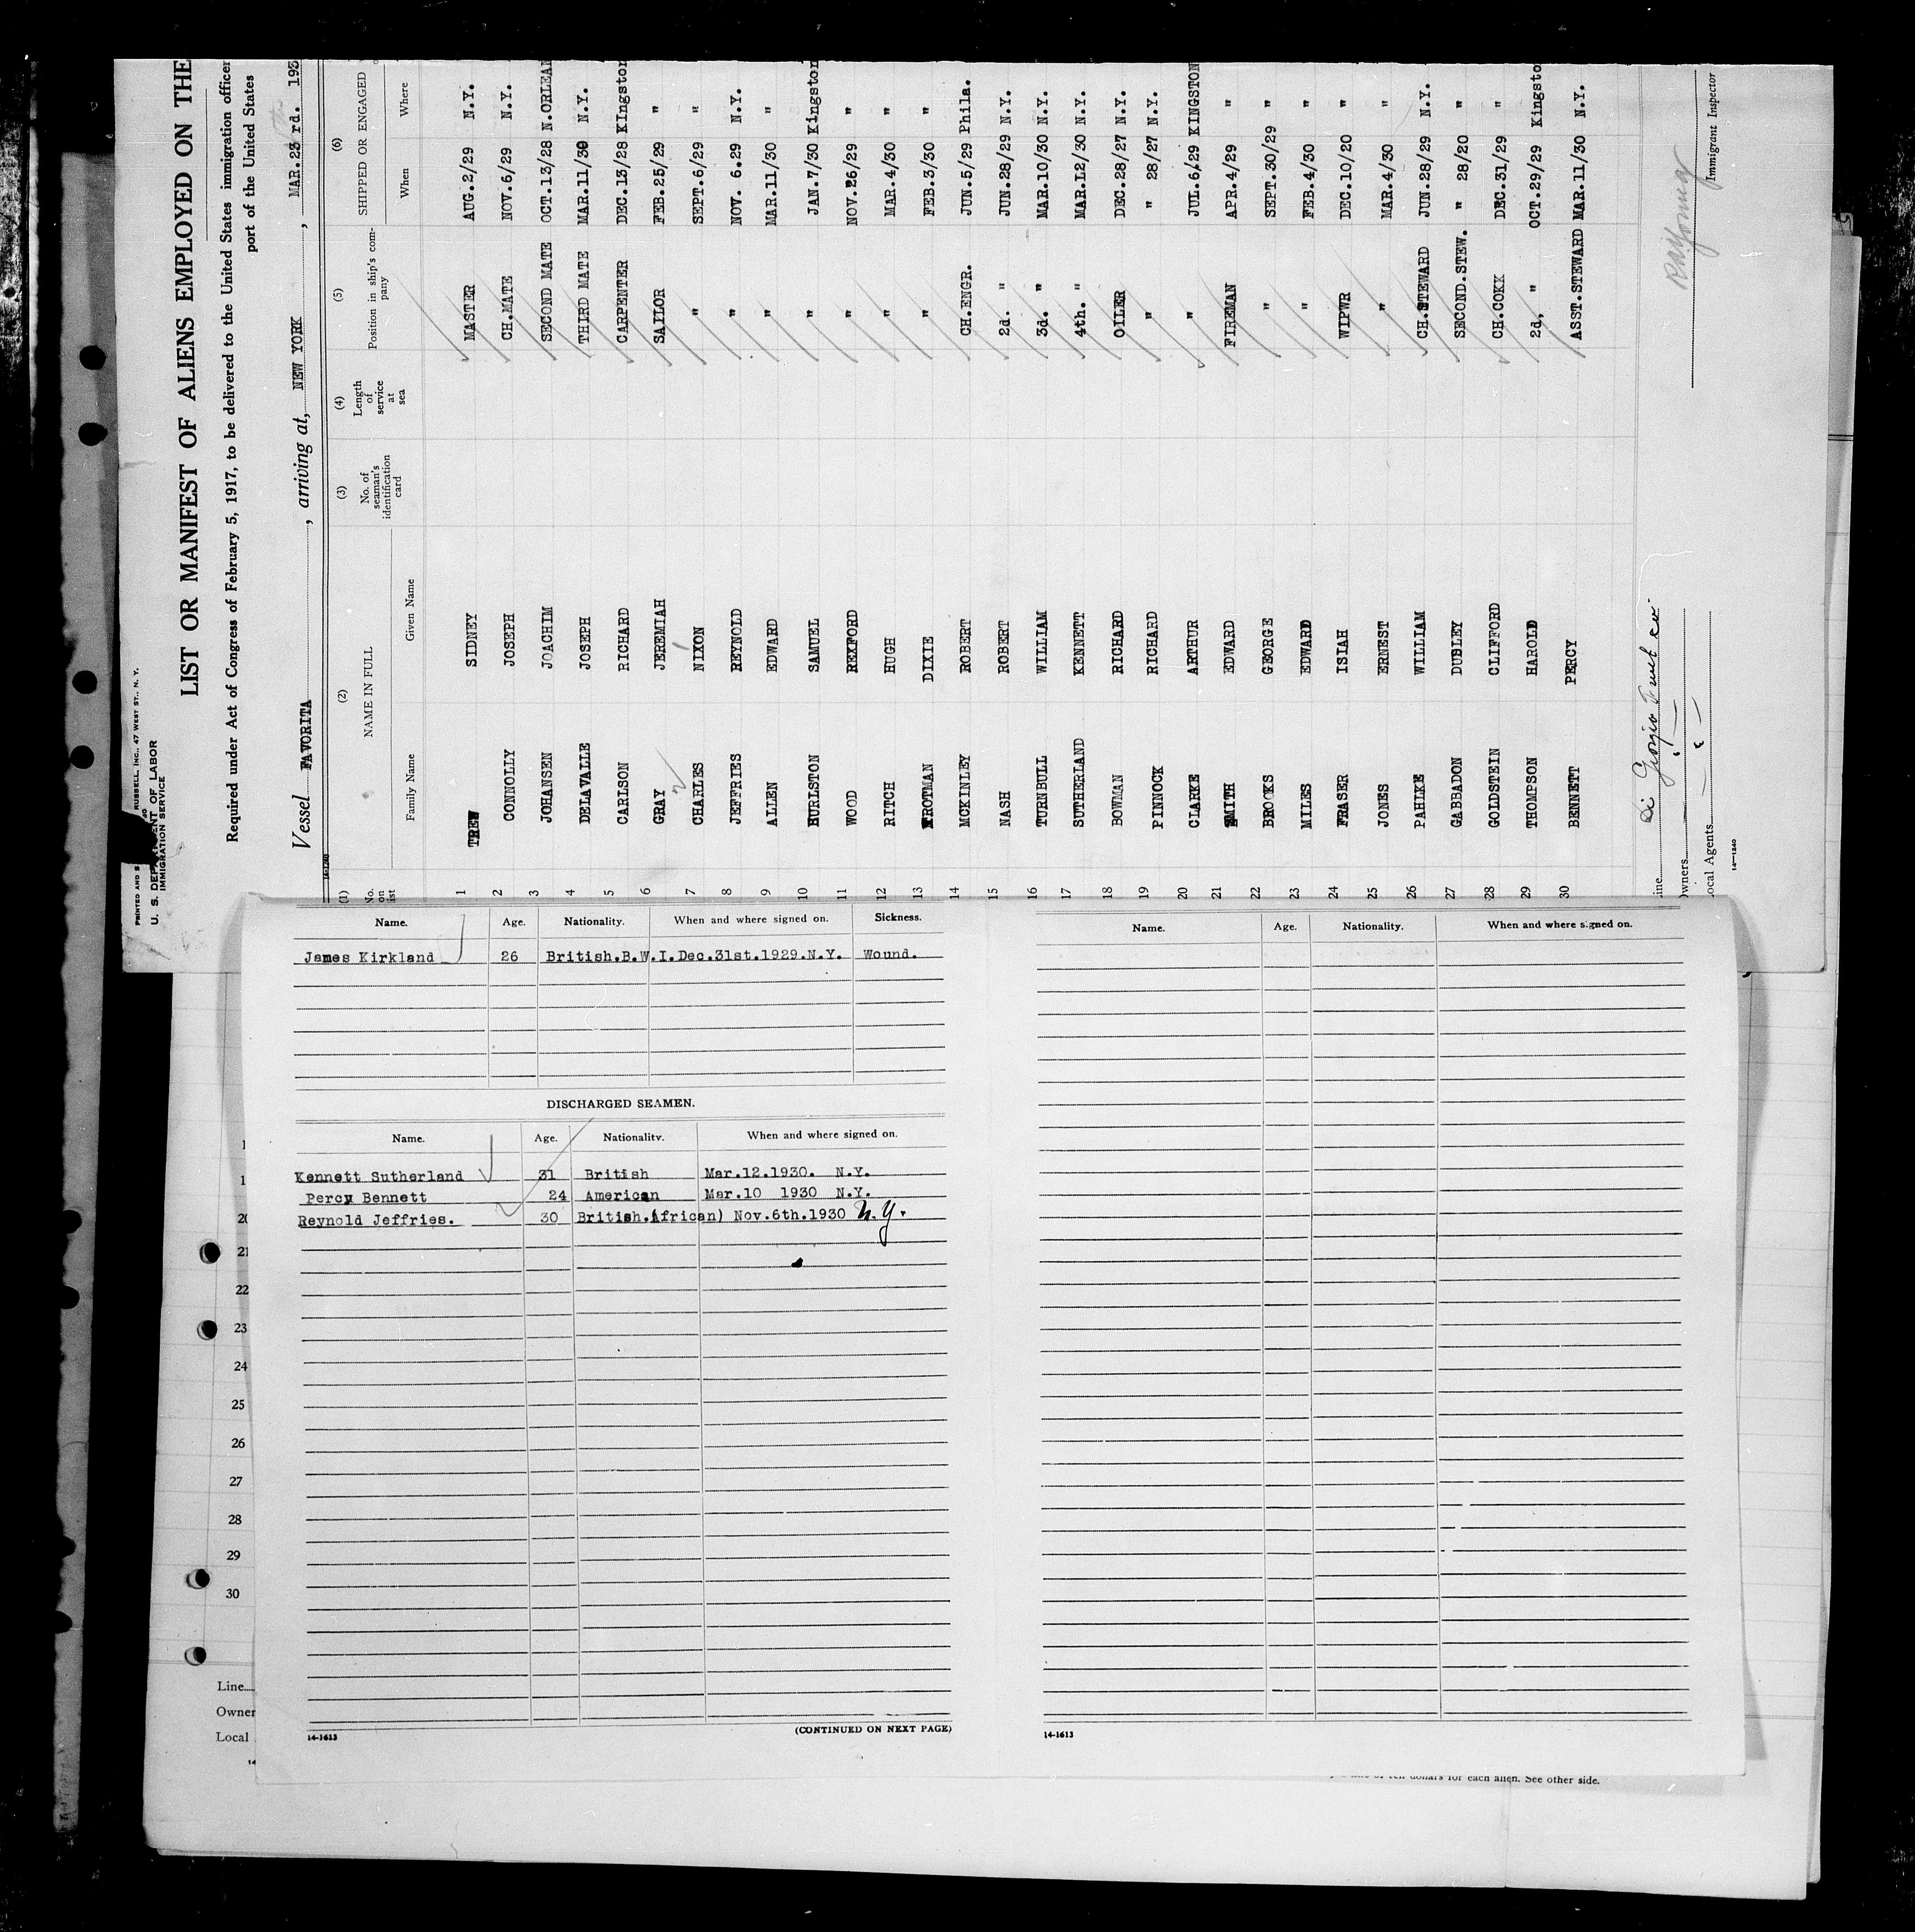 PRINTED AND S RUSSELL, INC., 47 WEST ST., N. Y.
U. S. DEPARTMENT OF LABOR
IMMIGRATION SERVICE
LIST OR MANIFEST OF ALIENS EMPLOYED ON THE
Required under Act of Congress of February 5, 1917, to be delivered to the United States immigration officer
port of the United States
Vessel FAVORITA, arriving at, NEW YORK, MAR.23 rd. 193
14-1240
(1) (2) (3) (4) (5) (6)
No. on list NAME IN FULL No. of seaman's identification card Length of service at sea Position in ship's company SHIPPED OR ENGAGED
Family Name Given Name When Where
1 TREW SIDNEY MASTER AUG.2/29 N.Y.
2 CONNOLLY JOSEPH CH.MATE NOV.6/29 N.Y.
3 JOHANSEN JOACHIM SECOND MATE OCT.13/28 N.ORLEAN
4 DELAVALLE JOSEPH THIRD MATE MAR.11/30 N.Y.
5 CARLSON RICHARD CARPENTER DEC.13/28 KIngston
6 GRAY JEREMIAH SAILOR FEB.25/29 "
7 CHARLES NIXON " SEPT.6/29 "
8 JEFFRIES REYNOLD " NOV. 6.29 N.Y.
9 ALLEN EDWARD " MAR.11/30 "
10 BURLSTON SAMUEL " JAN.7/30 Kingston
11 WOOD REXFORD " NOV.26/29 "
12 RITCH HUGH " MAR.4/30 "
13 TROTMAN DIXIE " FEB.3/30 "
14 MCKINLEY ROBERT CH.ENGR. JUN.5/29 Phila.
15 NASH ROBERT 2d. " JUN.28/29 N.Y.
16 TURNBULL WILLIAM 3d. " MAR.10/30 N.Y.
17 SUTHERLAND KENNETT 4th. " MAR.12/30 N.Y.
18 BOWMAN RICHARD OILER DEC.28/27 N.Y.
19 PINNOCK RICHARD " " 28/27 N.Y.
20 CLARKE ARTHUR " JUL.6/29 KINGSTON
21 SMITH EDWARD FIREMAN APR.4/29 "
22 BROCKS GEORGE " SEPT.30/29 "
23 MILES EDWARD " FEB.4/30 "
24 FRASER ISIAH WIPWR DEC.10/20 "
25 JONES ERNEST " MAR.4/30 "
26 PAHLKE WILLIAM CH.STEWARD JUN.28/29 N.Y.
27 GABBADON DUDLEY SECOND.STEW. " 28/20 "
28 GOLDSTEIN CLIFFORD CH.COKK DEC.31/29 "
29 THOMPSON HAROLD 2d, " OCT.29/29 Kingsto
30 BENNETT PERCY ASST.STEWARD MAR.11/30 N.Y.
ine Di Giorgio Fruit Co.
wners
ocal Agents
Immigrant Inspector
14-1240
Name. Age. Nationality. When and where signed on. Sickness.
James Kirkland 26 British.B.W.I.Dec.31st.1929.N.Y. Wound.
DISCHARGED SEAMEN.
Name. Age. Nationality. When and where signed on.
Kennett Sutherland 31 British Mar.12.1930. N.Y.
Percy Bennett 24 American Mar.10 1930 N.Y.
Reynold Jeffries. 30 British.(African) Nov.6th.1930 N.Y.
14-1613 (CONTINUED ON NEXT PAGE)
Name. Age. Nationality. When and where signed on.
14-1613
1
1
20
21
22
23
24
25
26
27
28
29
30
Line
Owner
Local
14
of ten dollars for each alien. See other side.